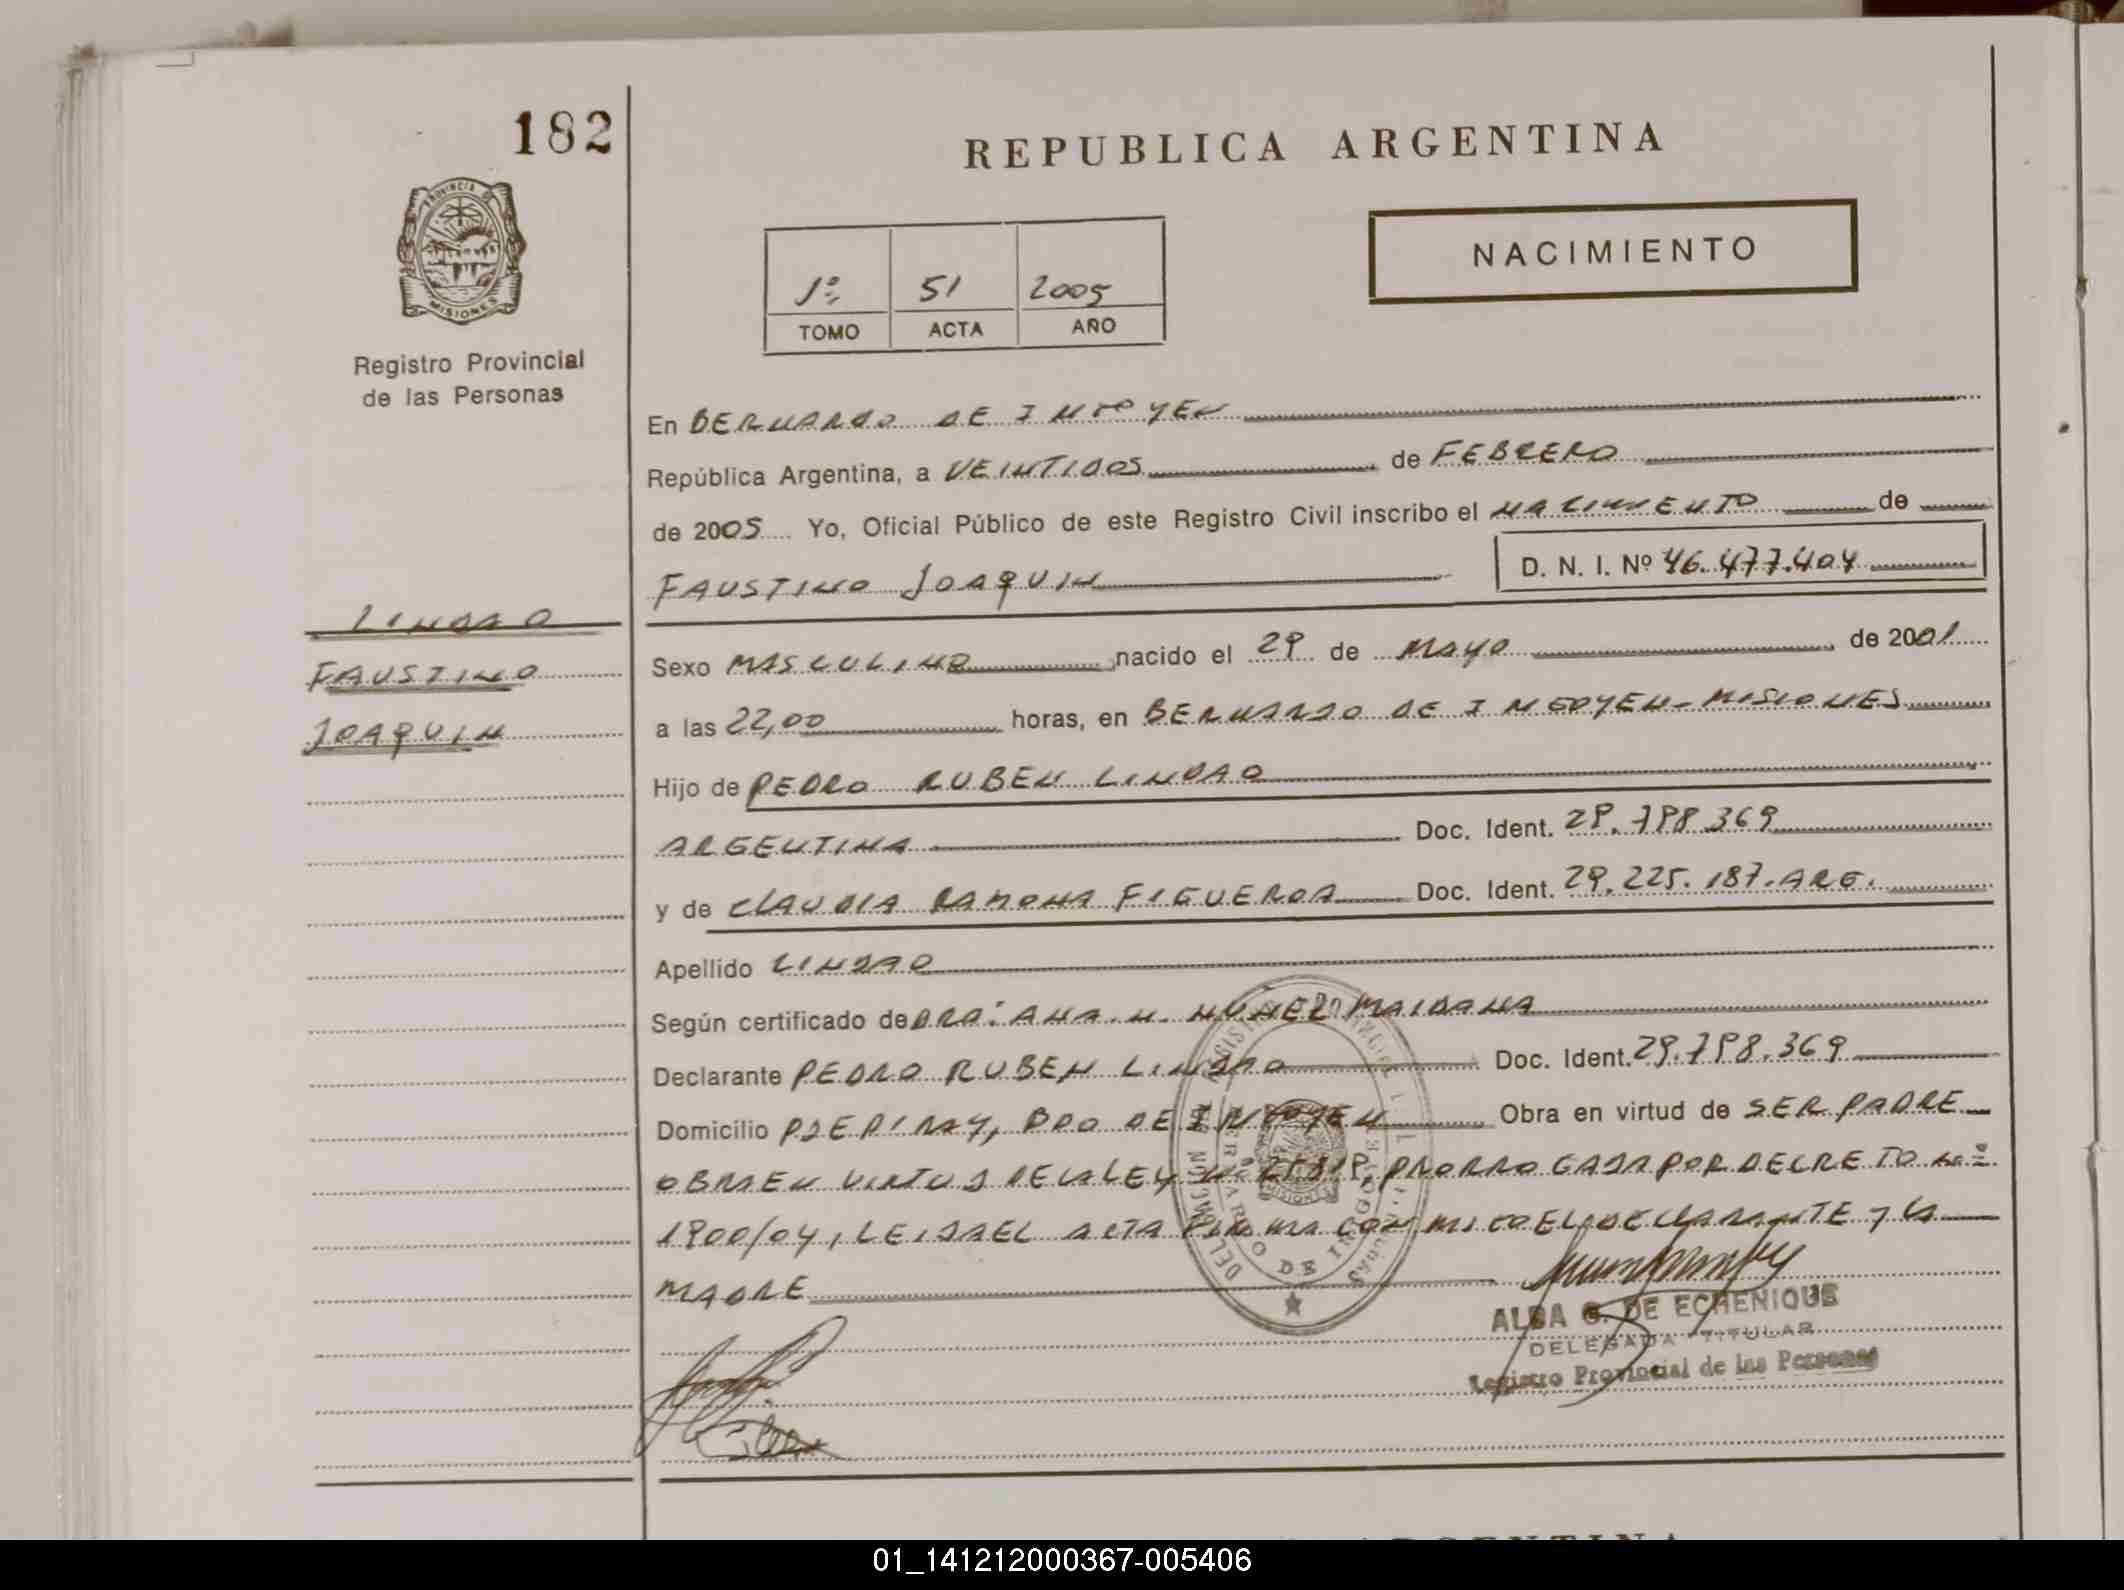 182
REPUBLICA ARGENTINA
PROVINCIA DE
MISIONES
Registro Provincial
de las Personas
NACIMIENTO
1º 51 2005
TOMO ACTA AÑO
En BERNARDO DE IRIGOYEN
República Argentina, a VEINTIDOS de FEBRERO
de 2005 Yo, Oficial Público de este Registro Civil inscribo el NACIMIENTO de
FAUSTINO JOAQUIN D. N. I. Nº 46.477.404
LINDAO
FAUSTINO
JOAQUIN
Sexo MASCULINO nacido el 29 de MAYO de 2001
a las 22,00 horas, en BERNARDO DE IRIGOYEN - MISIONES
Hijo de PEDRO RUBEN LINDAO
ARGENTINA Doc. Ident. 29.798.369
y de CLAUDIA RAMONA FIGUEROA Doc. Ident. 29.225.187. ARG.
Apellido LINDAO
Según certificado de DRA: ANA. N. NUÑEZ MAIDANA
Declarante PEDRO RUBEN LINDAO Doc. Ident. 29.798.369
Domicilio BDO DE IRIGOYEN Obra en virtud de SER PADRE
OBRA EN VIRTUD DE LA LEY PRORROGADA POR DECRETO Nº
1900/04, LEIDA EL ACTA FIRMA CONMIGO EL DECLARANTE Y LA
MADRE
ALBA G. DE ECHENIQUE
DELEGADA TITULAR
Registro Provincial de las Personas
ARGENTINA
01_141212000367-005406